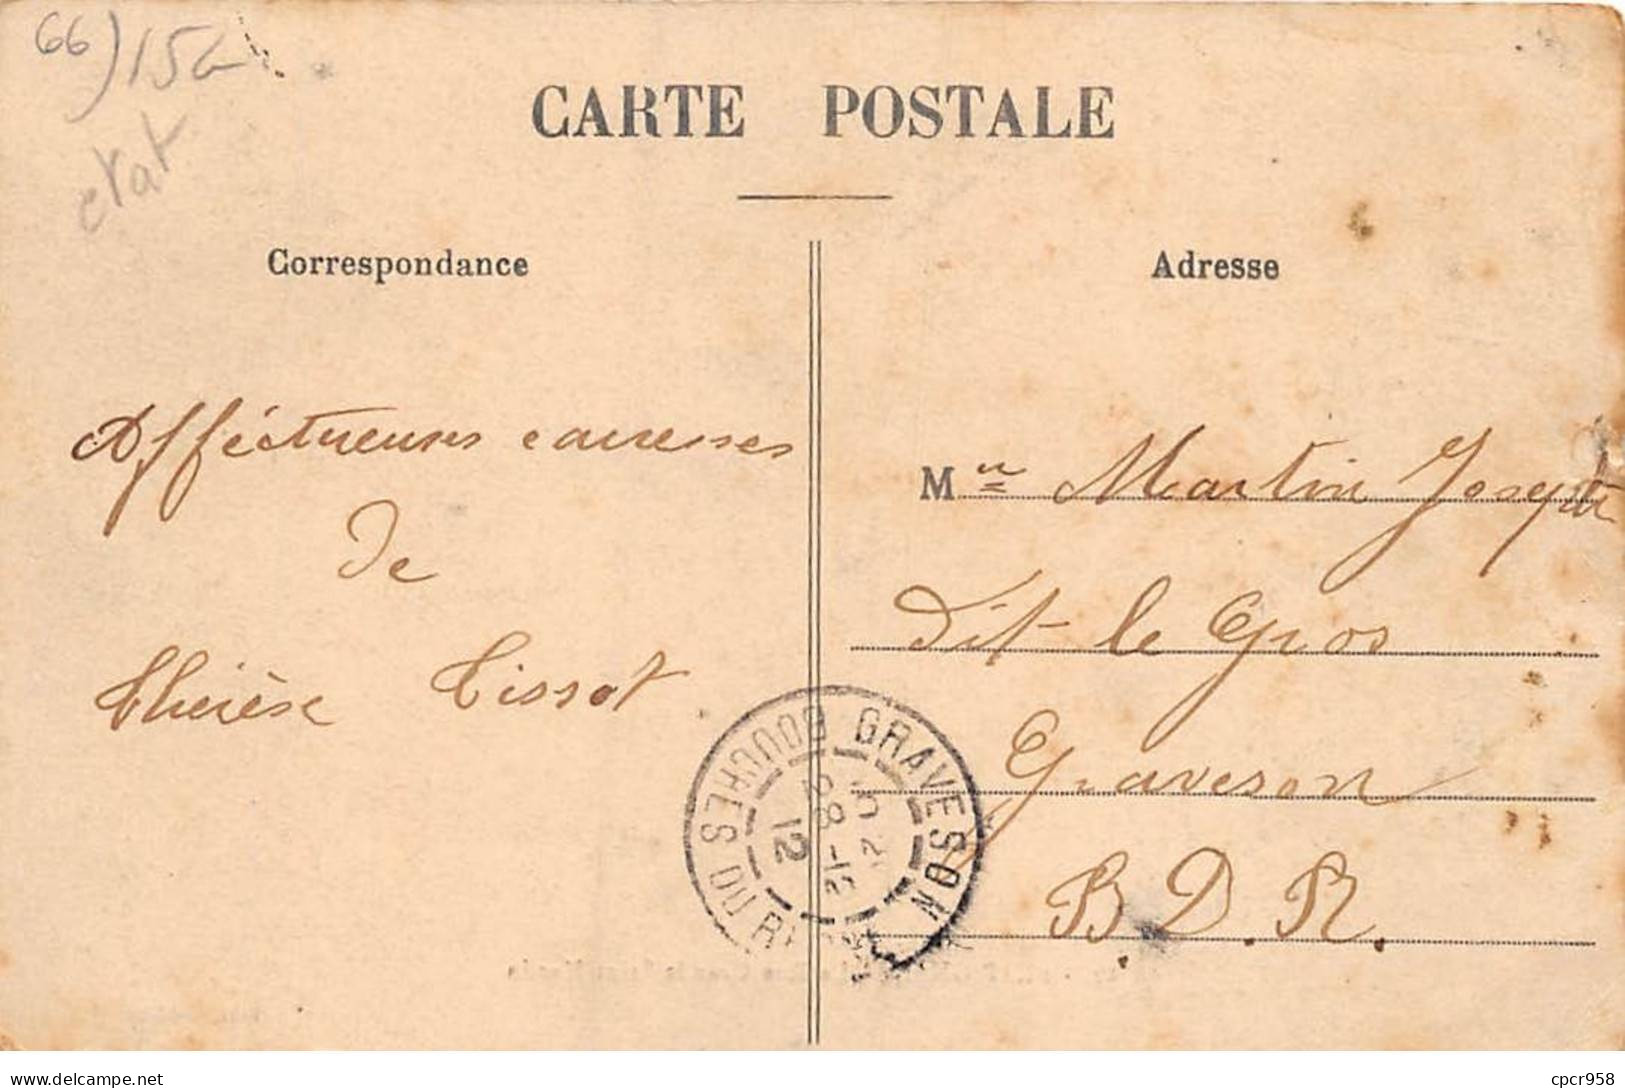 66) 15c
etat
CARTE POSTALE
Correspondance
Adresse
Afféctueuses caresses
de
Thérèse Tissot
Mlle Martin Joseph
Dit le Gros
Graveson
B. D. R.
GRAVESON
BOUCHES DU
28 -12
12
delcampe.net
cpcr958